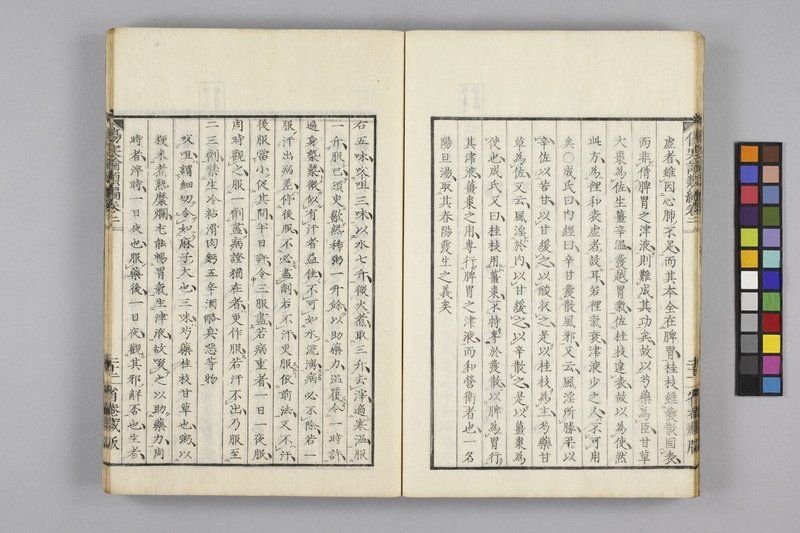 虛者雖因心肺不足而其本全在脾胃桂枝雖發散固表
而非借脾胃之津液則難成其功矣故以芍藥為臣甘草
大棗為佐生薑辛溫發越胃氣佐桂枝達表故以為使然
此方為裡和表虛者設耳若裡氣衰津液少之人不可用
矣○成氏曰內經曰辛甘發散風邪又云風淫所勝平以
辛佐以苦甘以甘緩之以酸收之是以桂枝為主芍藥甘
草為佐又云風淫於內以甘緩之以辛散之是以薑棗為
使也成氏又曰桂枝用薑棗不特專於發散以脾為胃行
其津液薑棗之用專行脾胃之津液而和營衛者也一名
陽旦湯取其春陽發生之義矣
右五味㕮咀三味以水七升微火煮取三升去滓適寒溫服
一升服已須臾歠熱稀粥一升餘以助藥力溫覆令一時許
遍身漐漐微似有汗者益佳不可如水流漓病必不除若一
服汗出病差停後服不必盡劑若不汗更服依前法又不汗
後服當小促其間半日許令三服盡若病重者一日一夜服
周時觀之服一劑盡病證猶在者更作服若汗不出乃服至
二三劑禁生冷粘滑肉麪五辛酒酪臭惡等物
㕮咀謂細切令如麻子大也三味芍藥桂枝甘草也粥以
粳米煮熟糜爛尤能暢胃氣生津液故歠之以助藥力周
時者淬時一日夜也服藥後一日夜觀其邪解否也生者
傷寒論類編卷二
二十二
省菴藏版